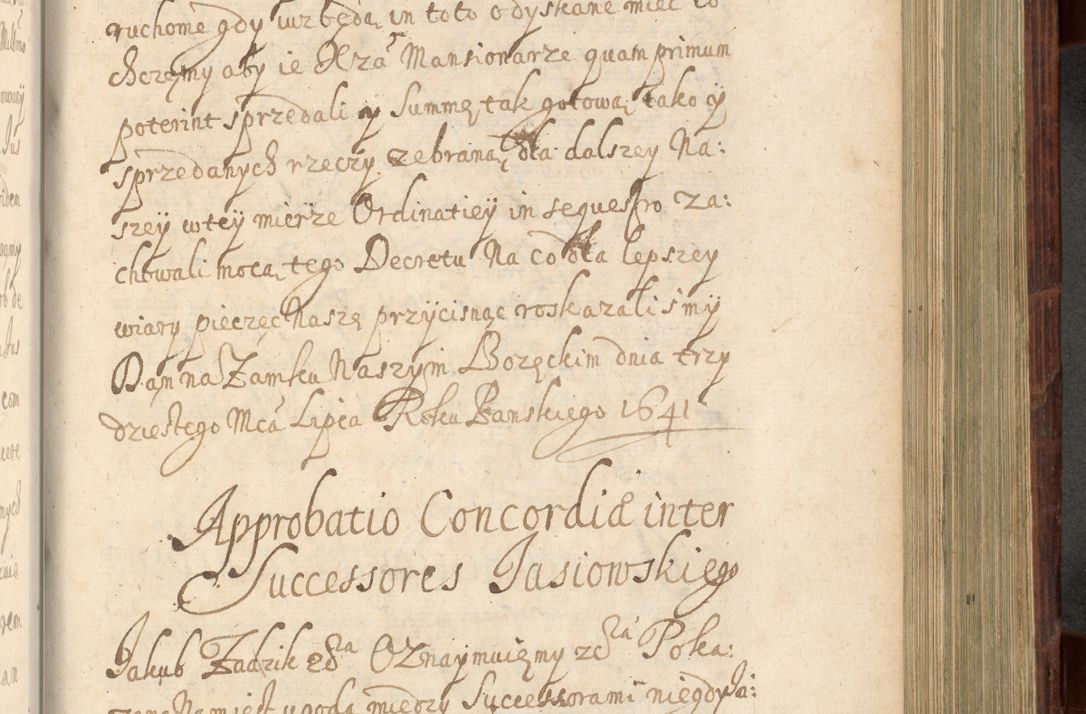 ruchome gdy iuz będą in toto odyskane miec to
chczęmy aby ie Xzá Mansionarze quam primum
poterint sprzedali y Summę tak gotową, tako y
sprzedanych rzeczy zebraną, dla dalszey Na:
szey wtey mierze Ordinatiey in sequestro za:
chowali mocą tego Decretu Na co dla lepszey
wiary pieczęc Naszę przycisnąc roskazalismy
Dan na Zamku Naszym Bozęckim dnia trzy
dziestego Mcá Lipca Roku Panskiego 1641
Approbatio Concordiæ inter
Successores Jasiowskiego
Jakub Zadzik etc Oznaymuięmy Poka:
zano Nam iest ugodą między Successorami niegdy Ja: